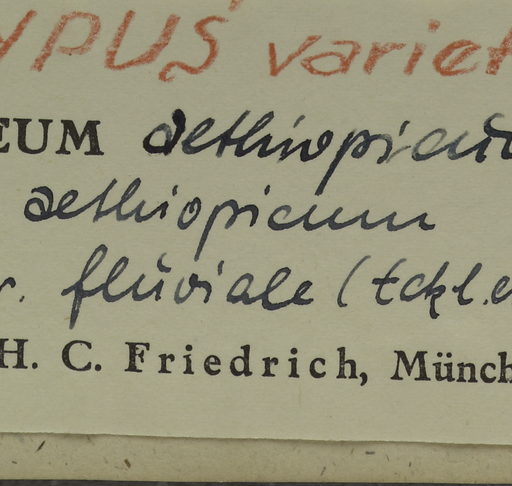 YPUS variet
EUM aethiopicu
aethiopicum
r. fluviale (Eckl. e
H. C. Friedrich, Münch